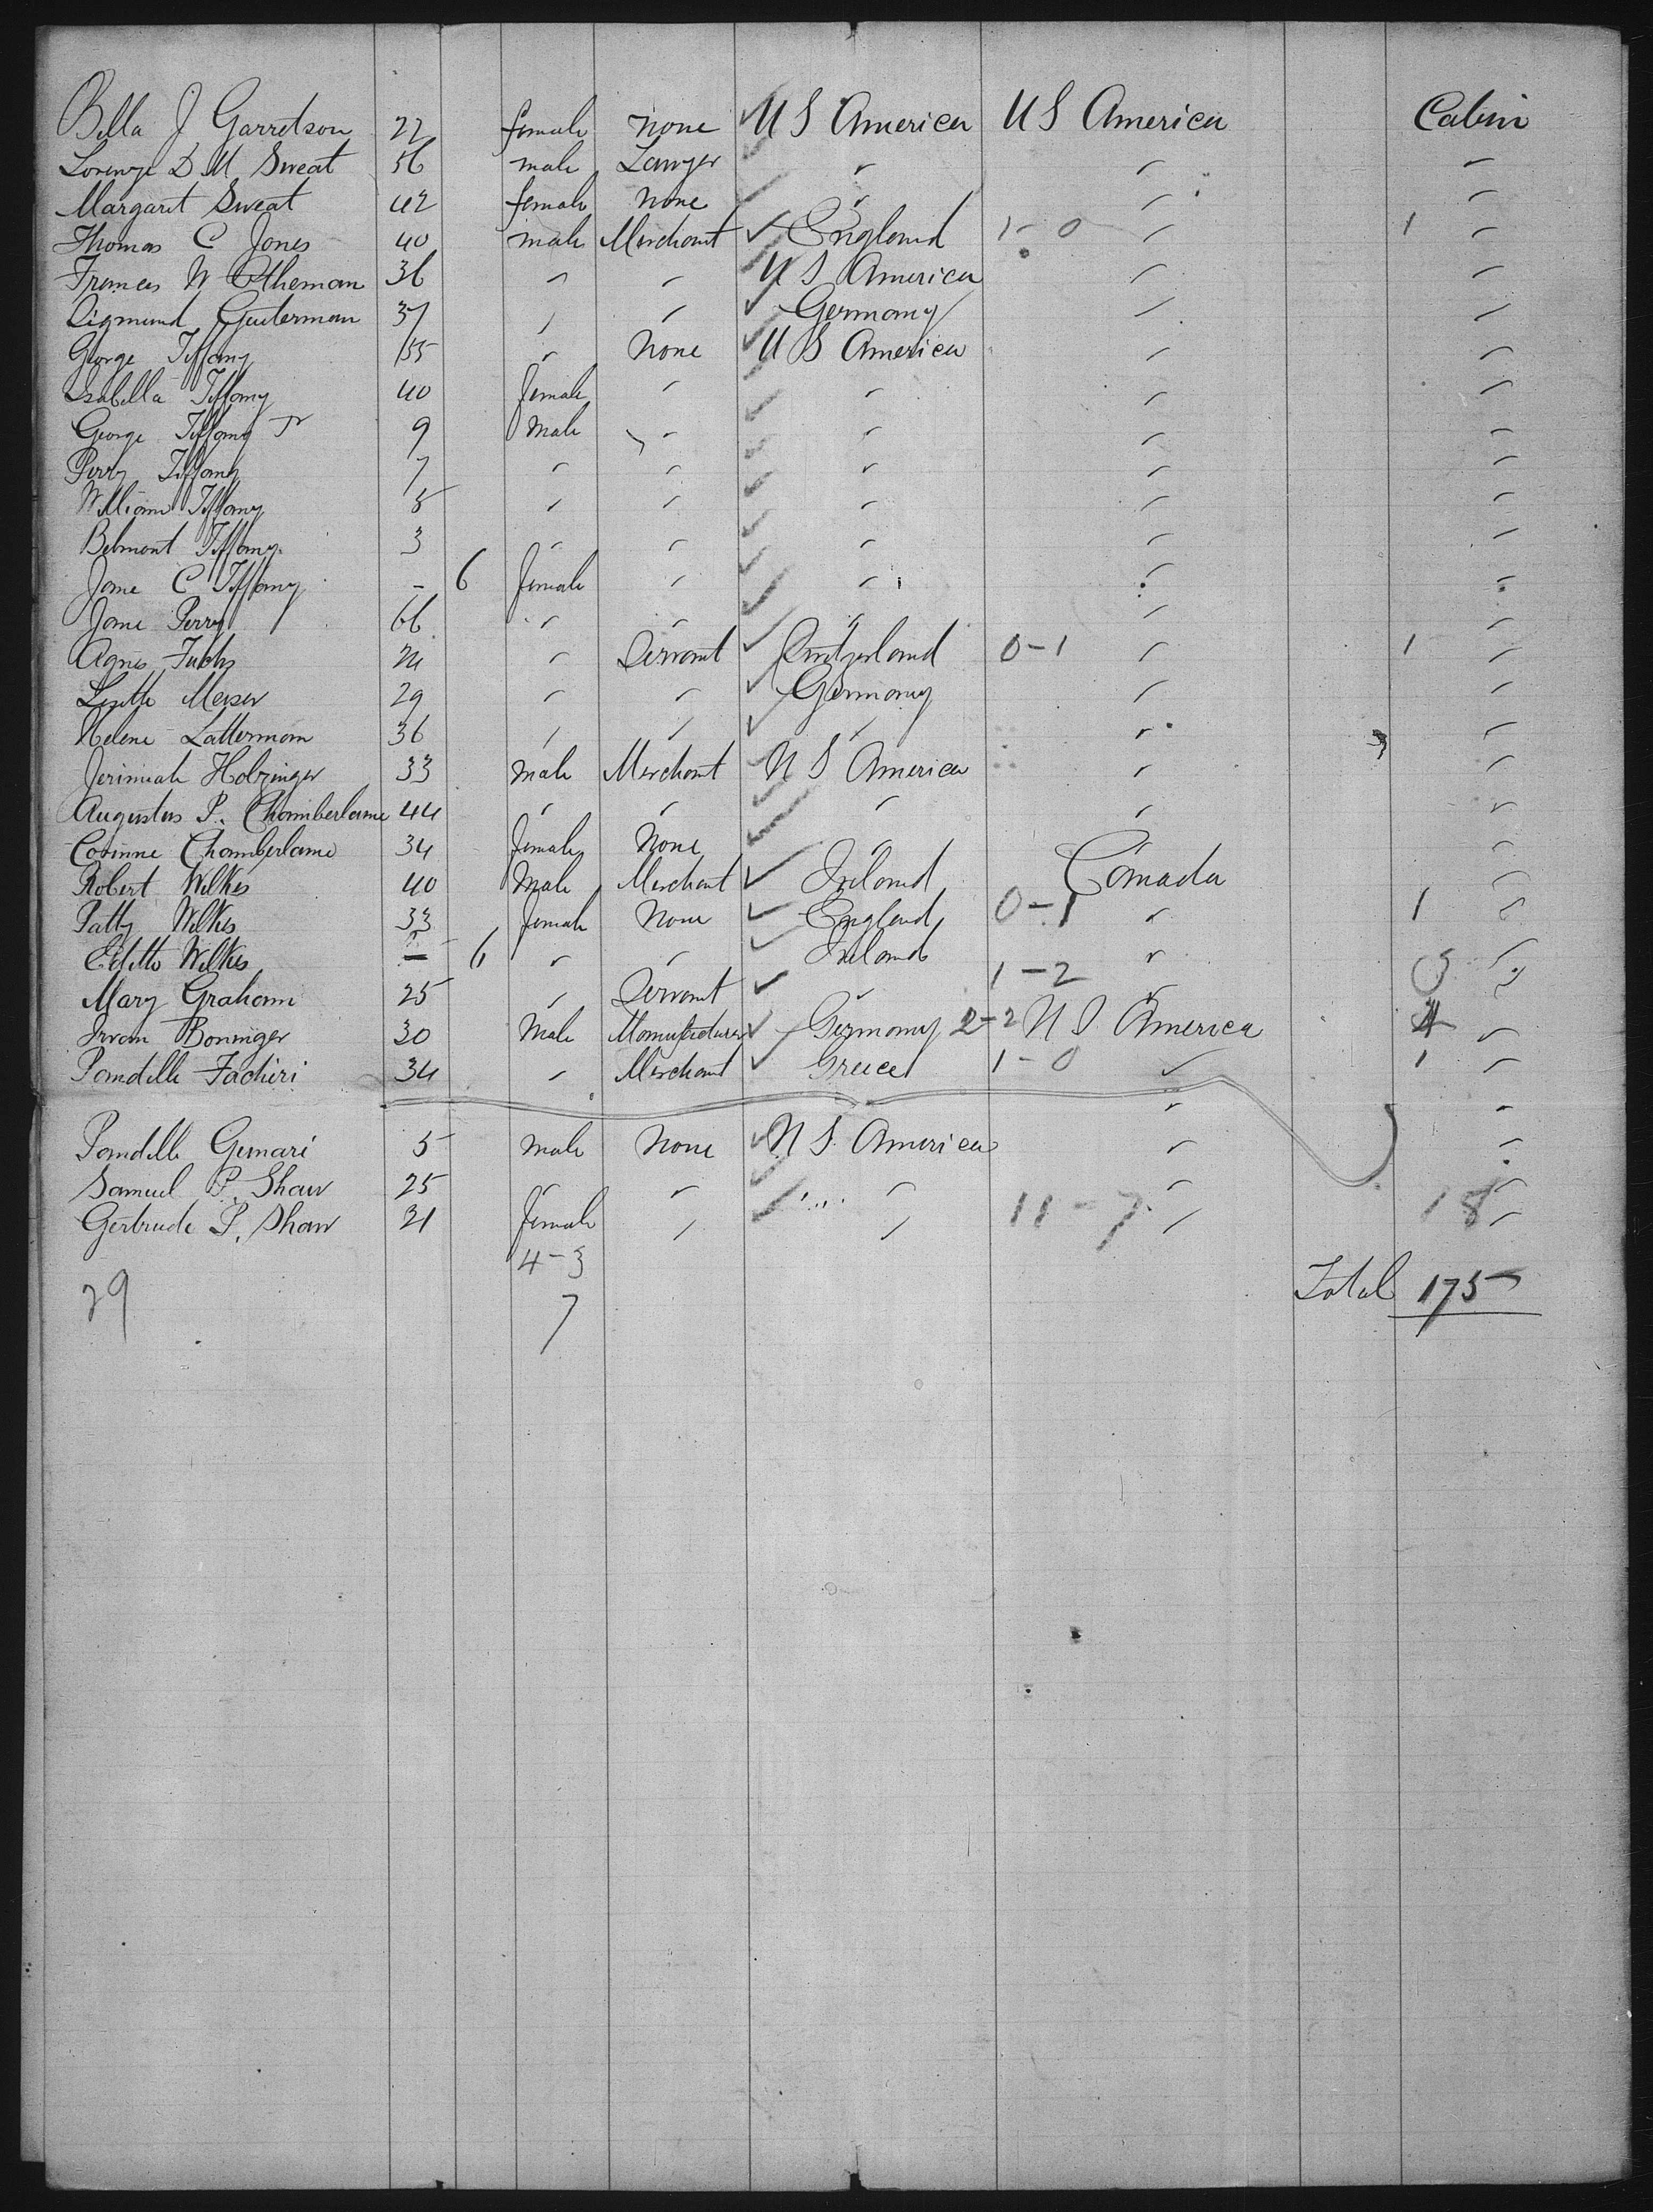 Bella J Garretson 22 female none U S America U S America Cabin
Lorenzo D. M. Sweat 56 male Lawyer " " "
Margaret Sweat 42 female none " " "
Thomas C Jones 40 male Merchant England 1-0 " 1 "
Frances W Otheman 36 " " U S America " "
Sigmund Guterman 37 " " Germany " "
George Tiffany 55 " None U S America " "
Isabella Tiffany 40 female " " " "
George Tiffany Jr 9 Male " " " "
Perry Tiffany 7 " " " " "
William Tiffany 5 " " " " "
Belmont Tiffany 3 " " " " "
Jane C Tiffany - 6 female " " " "
Jane Perry 66 " " " " "
Agnes Fuchs " Servant Switzerland 0-1 " 1 "
Lisette Meiser 29 " " Germany " "
Helene Latterman 36 " " " " "
Jerimiah Holzinger 33 male Merchant U S America " "
Augustus P. Chamberlaine 44 " " " " "
Corinne Chamberlaine 34 female None " " "
Robert Wilkes 40 Male Merchant Ireland Canada "
Patty Wilkes 33 female None England 0-1 " 1 "
Edith Wilkes - 6 " " Ireland " "
Mary Graham 25 " Servant " 1-2 " 3 "
Boninger 30 Male Manufacturer Germany 2-2 U S. America 4 "
Pandelle Fachiri 34 " Merchant Greece 1-0 " 1 "
" "
Pandelle Gunari 5 male None U S. America " "
Samuel P. Shaw 25 " " " " "
Gertrude P. Shaw 21 female " " 11-7 " 18 "
4-3
29 7 Total 175